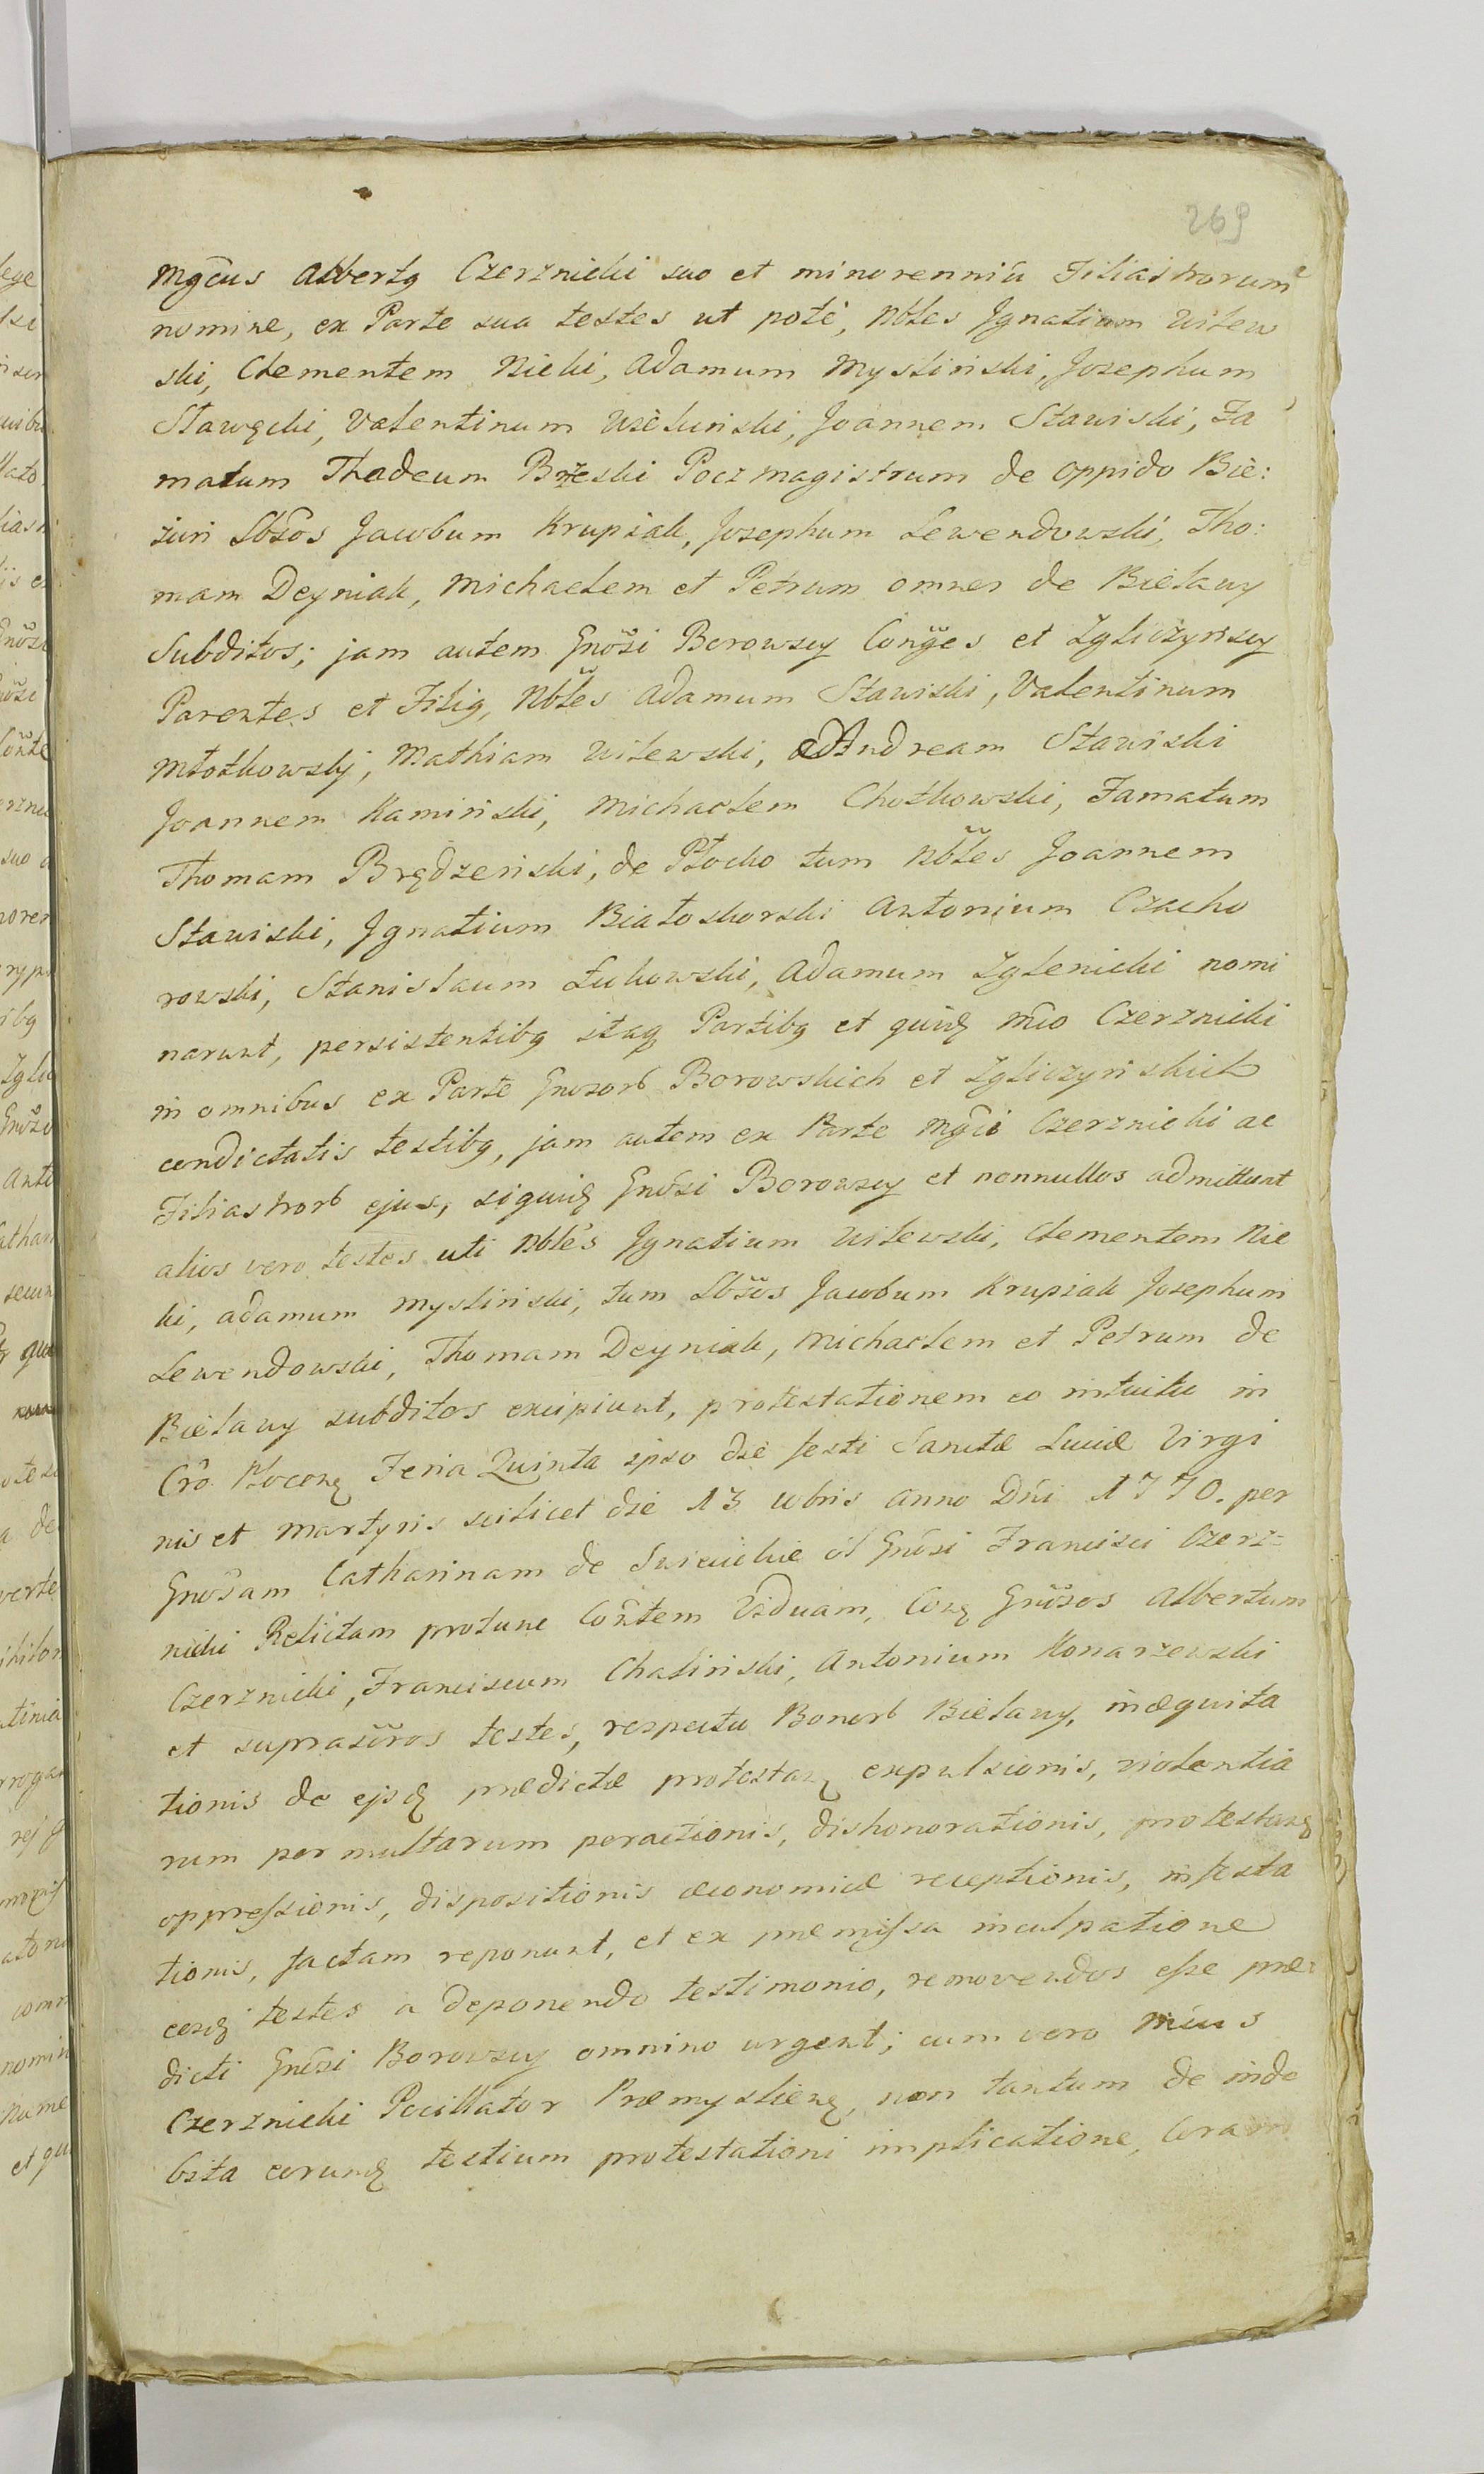 269
Mgcus Albertq Czerznicki suo et minorenniũ Filiastrorum
nomine, ex Parte sua testes ut poté, Nbles Jgnatium Wilew
ski, Clementem Nicki, Adamum Mysliński, Josephum
Stawęcki, Valentinum Wieluński, Joannem Stawiski, Fa
matum Thadeum Brzeski Poczmagistrum de oppido Bie:
żuń Lbsos Jacobum Krupiak, Josephum Lewendowski, Tho:
mam Deyniak, Michaelem et Petrum omnes de Bielawy
Subditos; jam autem Gnosi Borowscy Conges et Zgliczyńscy
Parentes et Filiq, Nbles Adamum Stawiski, Valentinum
Młotkowskj, Mathiam Wilewski, Andream Stawiski
Joannem Kamiński, Michaelem Chotkowski, Famatum
Thomam Brędzeński, de Płocko tum Nbles Joannem
Stawiski, Jgnatium Białoskorski Antonium Czacho
rowski, Stanislaum Łukowski, Adamum Zglenicki nomi
narunt, persistentibq itaq Partibq et quidę Mco Czerznicki
in omnibus ex Parte Gnosorb Borowskich et Zgliczyńskich
condictatis testibq, jam autem ex Parte Mgci Czerznicki ac
Filiastrorb ejus, siquidę Gnosi Borowscy et nonnullos admittunt
alios vero testes uti Nbles Jgnatium Wilewski, Clementem Nic
ki, Adamum Mysliński, tum Lbsos Jacobum Krupiak Josephum
Lewendowski, Thomam Deyniak, Michaelem et Petrum de
Bielawy subditos excipiunt, protestationem eo intuitu in
Cro. Płocenę Feria Quinta ipso die festi Sanctæ Luciæ Virgi
nis et Martyris scilicet die 13 Xbris Anno Dńi 1770. per
Gnosam Catharinam de ol Gnosi Francisci Czerz=
nicki Relictam protunc Contem Viduam, Conę Gnosos Albertum
Czerznicki, Franciscum Chaliński, Antonium Konarzewski
et suprascros testes, respectu Bonorb Bielawy, inæquita
tionis de ejsdę prædictæ protestanę expulsionis, violentia
rum per multarum peractionis, dishonorationis, protestanę
oppressionis, dispositionis æconomicæ receptionis, infesta
tionis, factam reponunt, et ex præmissa inculpatione
eosdę testes a deponendo testimonio, removendos esse præ
dicti Gnosi Borowscy omnino urgent; cum vero Mcus
Czerznicki Pocillator Præmyslienę, non tantum de inde
bita eorundę testium protestationi implicatione, Coram